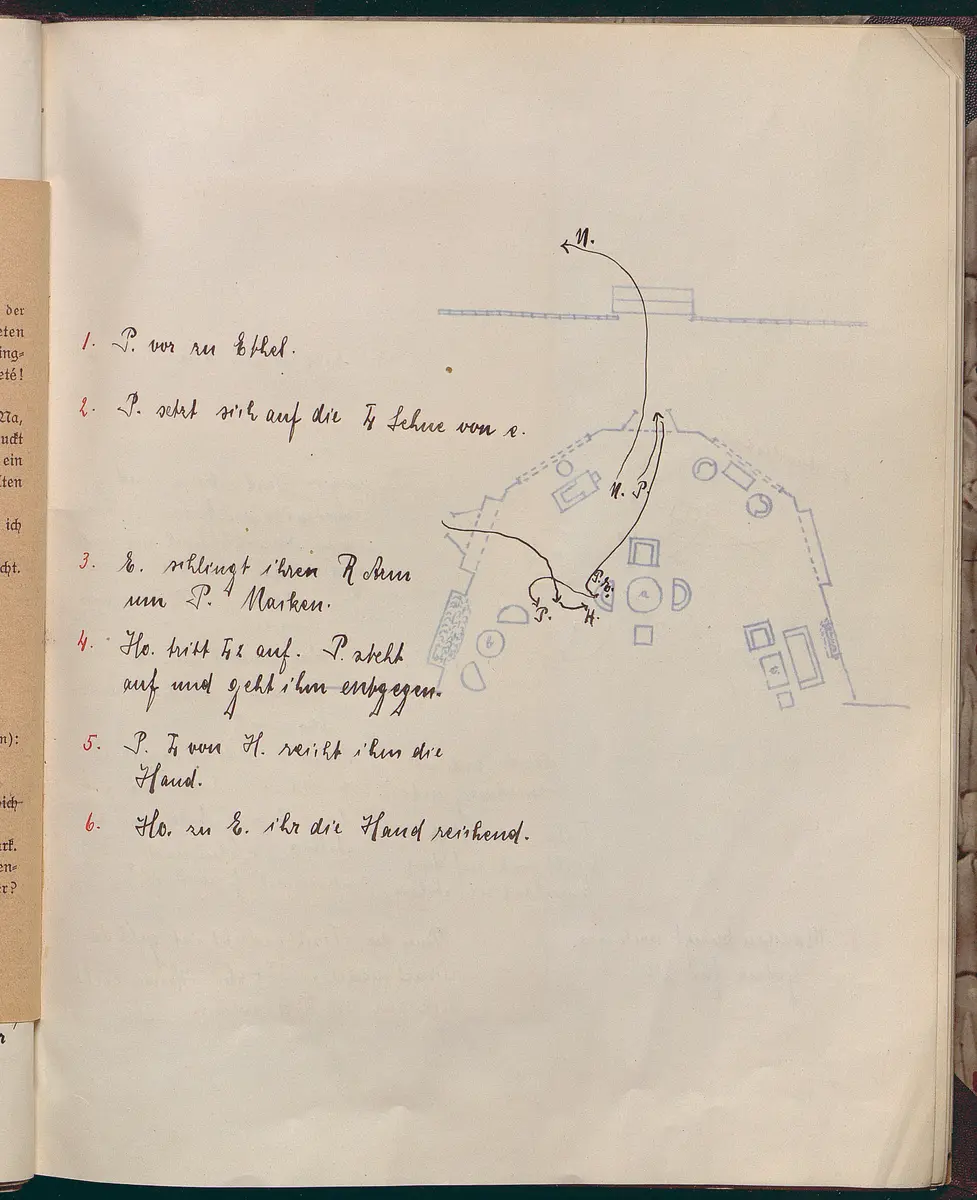 der
eten
ing=
eté!
Na,
uckt
ein
lten
ich
cht.
n):
ich
ark.
en=
er?
1. P. vor zu Ethel.
2. P. setzt sich auf die L Lehne von e.
3. E. schlingt ihren R Arm
um P.' Nacken.
4. Ho. tritt L2 auf. P. steht
auf und geht ihm entgegen.
5. P. L von H. reicht ihm die
Hand.
6. Ho. zu E. ihr die Hand reichend.
N.
N. P.
P. E.
P. H.